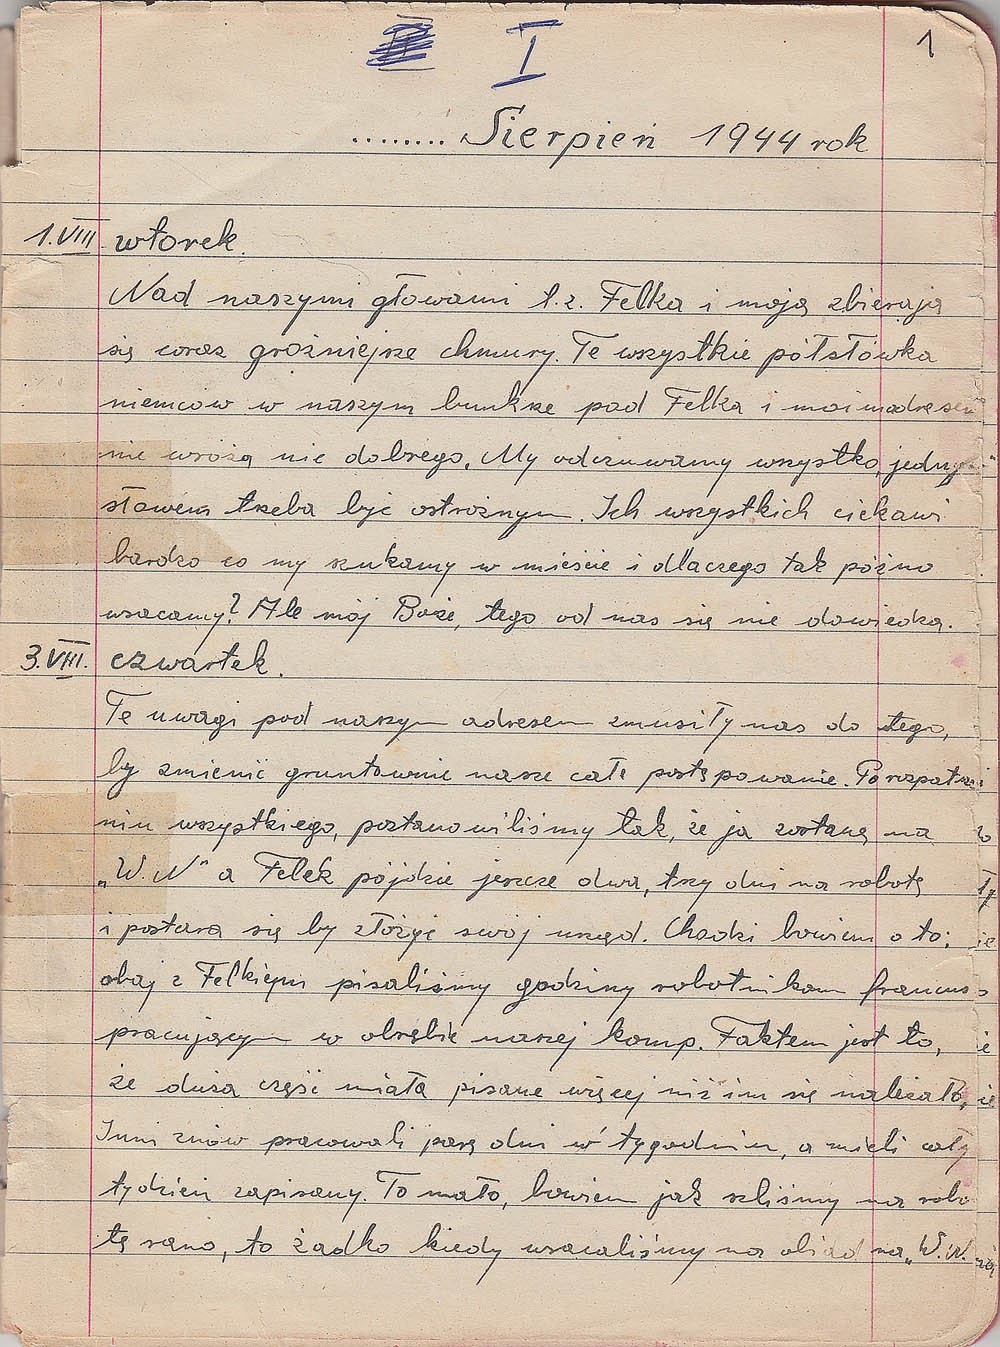 I
1
........ Sierpień 1944 rok
1.VIII wtorek.
Nad naszymi głowami t.z. Felka i moją zbierają
się coraz groźniejsze chmury. Te wszystkie półsłówka
niemców w naszym bunkrze pod Felka i moim adresem
nie wróżą nic dobrego. My odczuwamy wszystko, jednym
słowem trzeba być ostrożnym. Ich wszystkich ciekawi
bardzo co my szukamy w mieście i dlaczego tak późno
wracamy? Ale mój Boże, tego od nas się nie dowiedzą.
3.VIII. czwartek.
Te uwagi pod naszym adresem zmusiły nas do tego,
by zmienić gruntownie nasze całe postępowanie. Po rozpatrze
niu wszystkiego, postanowiliśmy tak, że ja zostanę na
„W.N" a Felek pójdzie jeszcze dwa, trzy dni na robotę
i postara się by złożyć swój urząd. Chodzi bowiem o to:
obaj z Felkiem pisaliśmy godziny robotnikom francus
pracującym w obrębie naszej komp. Faktem jest to,
że duża część miała pisane więcej niż im się należało,
Inni znów pracowali parę dni w tygodniu, a mieli cały
tydzień zapisany. To mało, bowiem jak szliśmy na robo
tę rano, to żadko kiedy wracaliśmy na obiad na „W.N.